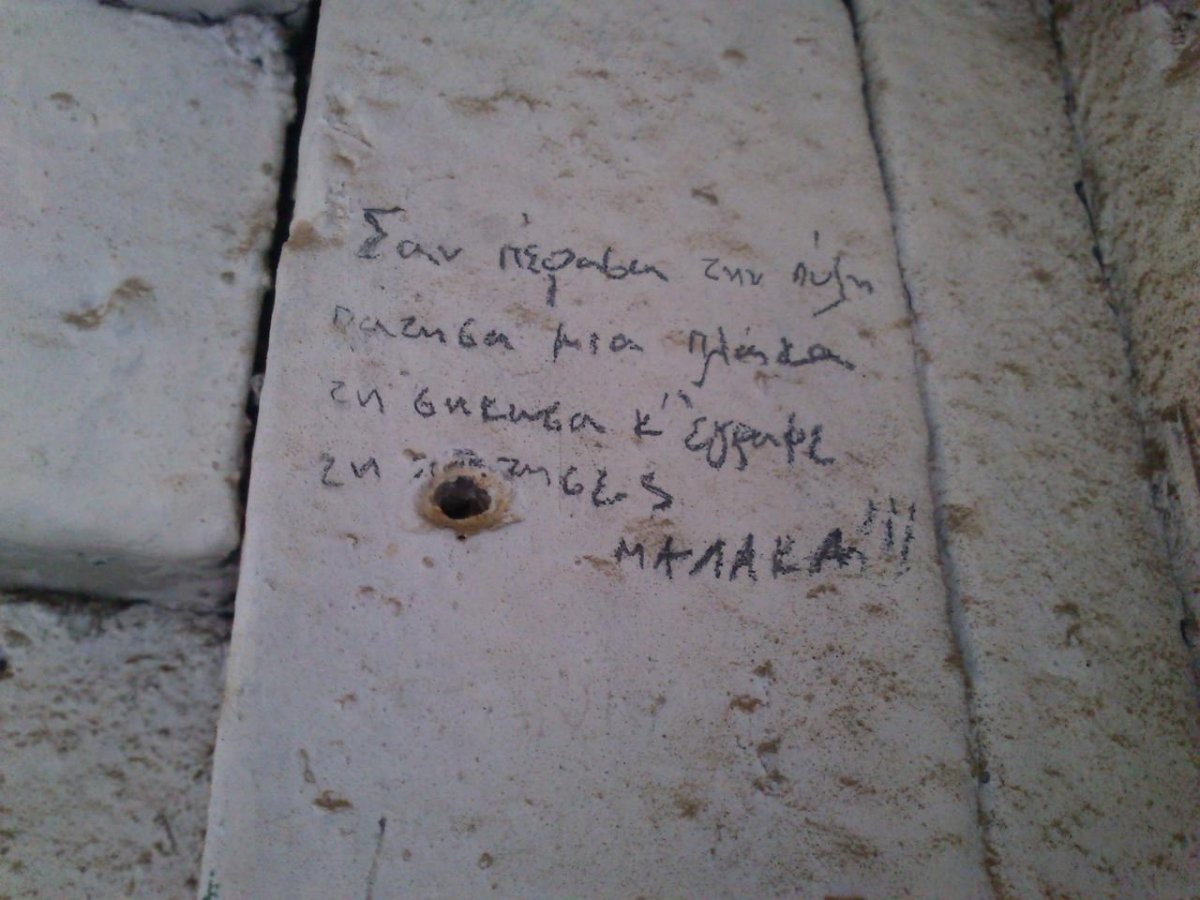 Σαν πέρασα την πύλη
πατησα μια πλάκα
τη σηκωσα κ' έγραφε
τη πατησες
ΜΑΛΑΚΑ!!!